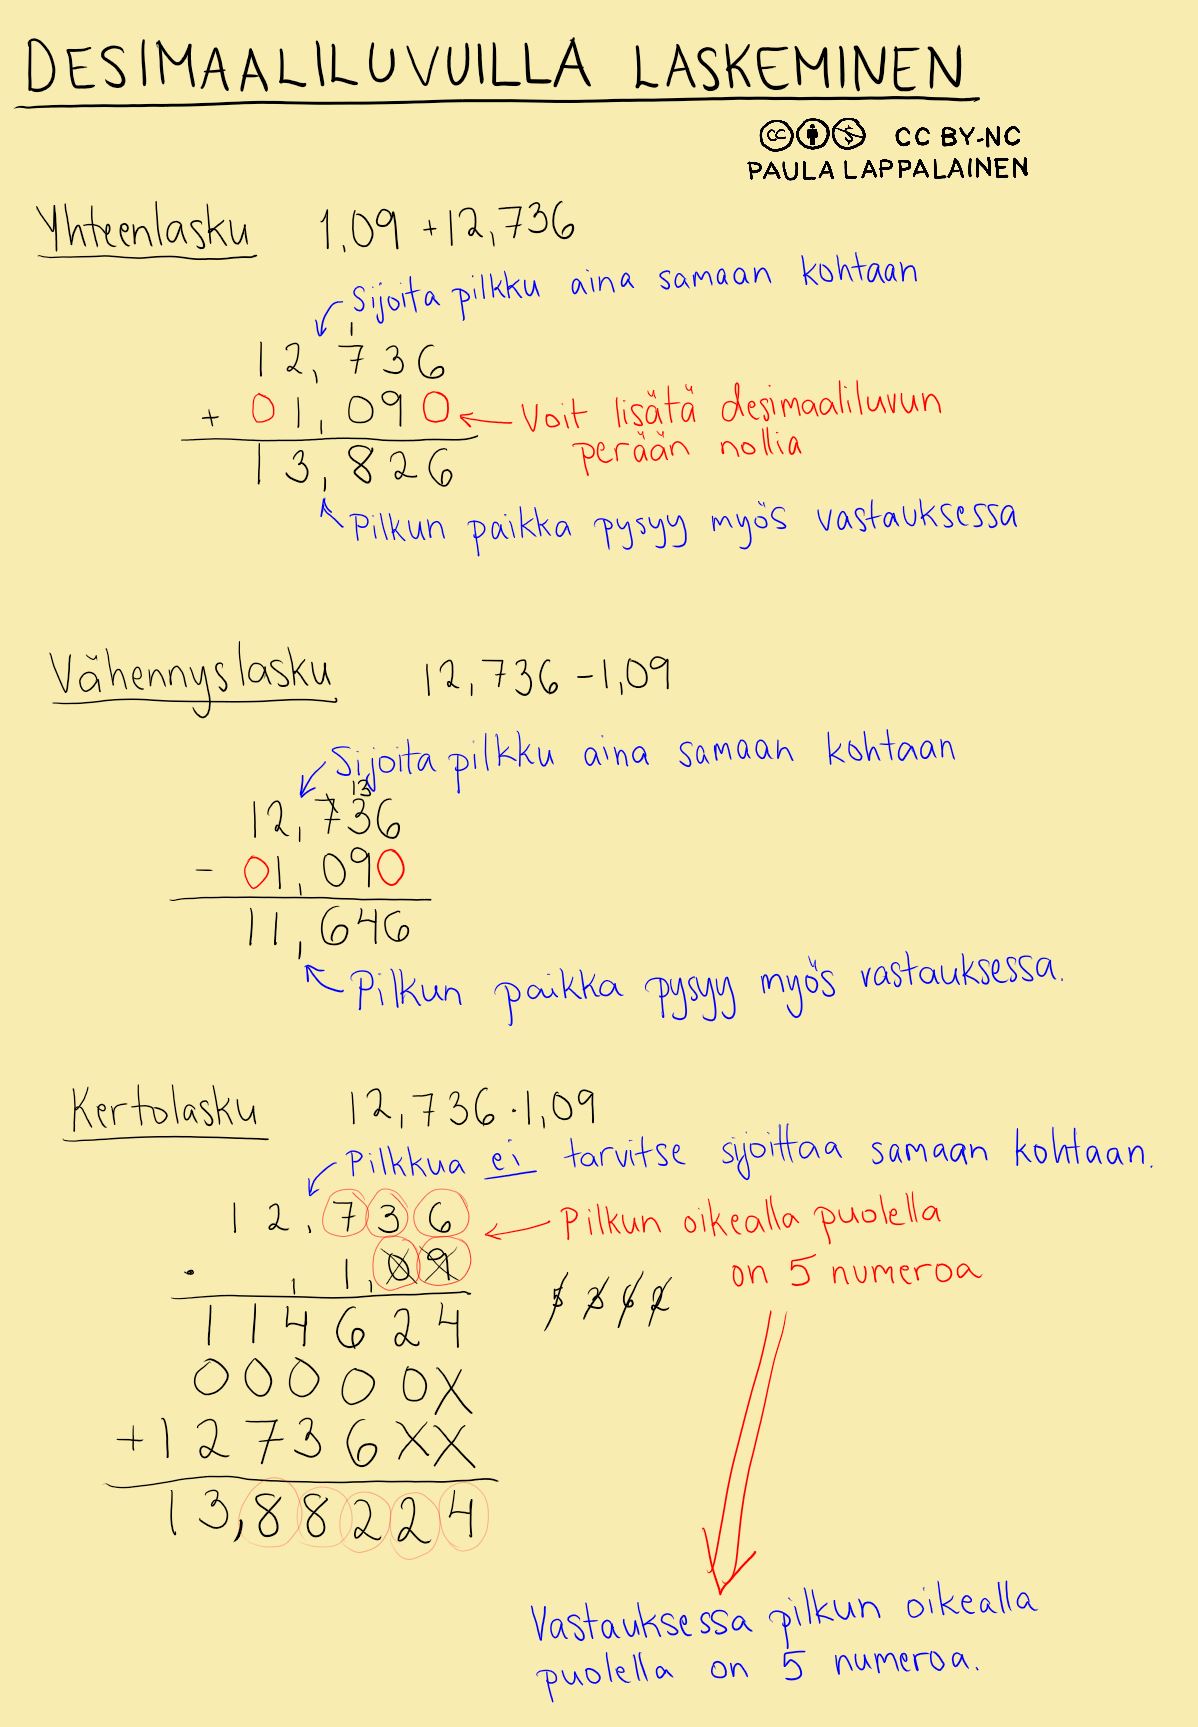 DESIMAALILUVUILLA LASKEMINEN
CC BY-NC
PAULA LAPPALAINEN
Yhteenlasku 1,09 + 12,736
Sijoita pilkku aina samaan kohtaan
1
12,736
+ 01,090 Voit lisätä desimaaliluvun
perään nollia
13,826
Pilkun paikka pysyy myös vastauksessa
Vähennyslasku 12,736 - 1,09
Sijoita pilkku aina samaan kohtaan
13
12,736
- 01,090
11,646
Pilkun paikka pysyy myös vastauksessa.
Kertolasku 12,736 · 1,09
Pilkkua ei tarvitse sijoittaa samaan kohtaan.
12,736 Pilkun oikealla puolella
· 1,09 on 5 numeroa
114624
00000X
+12736XX
13,88224
Vastauksessa pilkun oikealla
puolella on 5 numeroa.